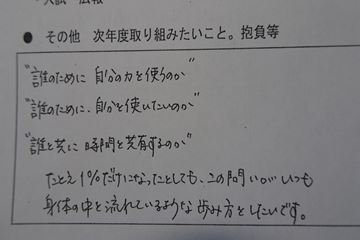 ● その他 次年度取り組みたいこと。抱負等
"誰のために 自分の力を使うのか"
"誰のために、自分を使いたいのか"
"誰と共に 時間を共有するのか"
たとえ1%だけになったとしても、この問いがいつも
身体の中を流れているような歩み方をしたいです。